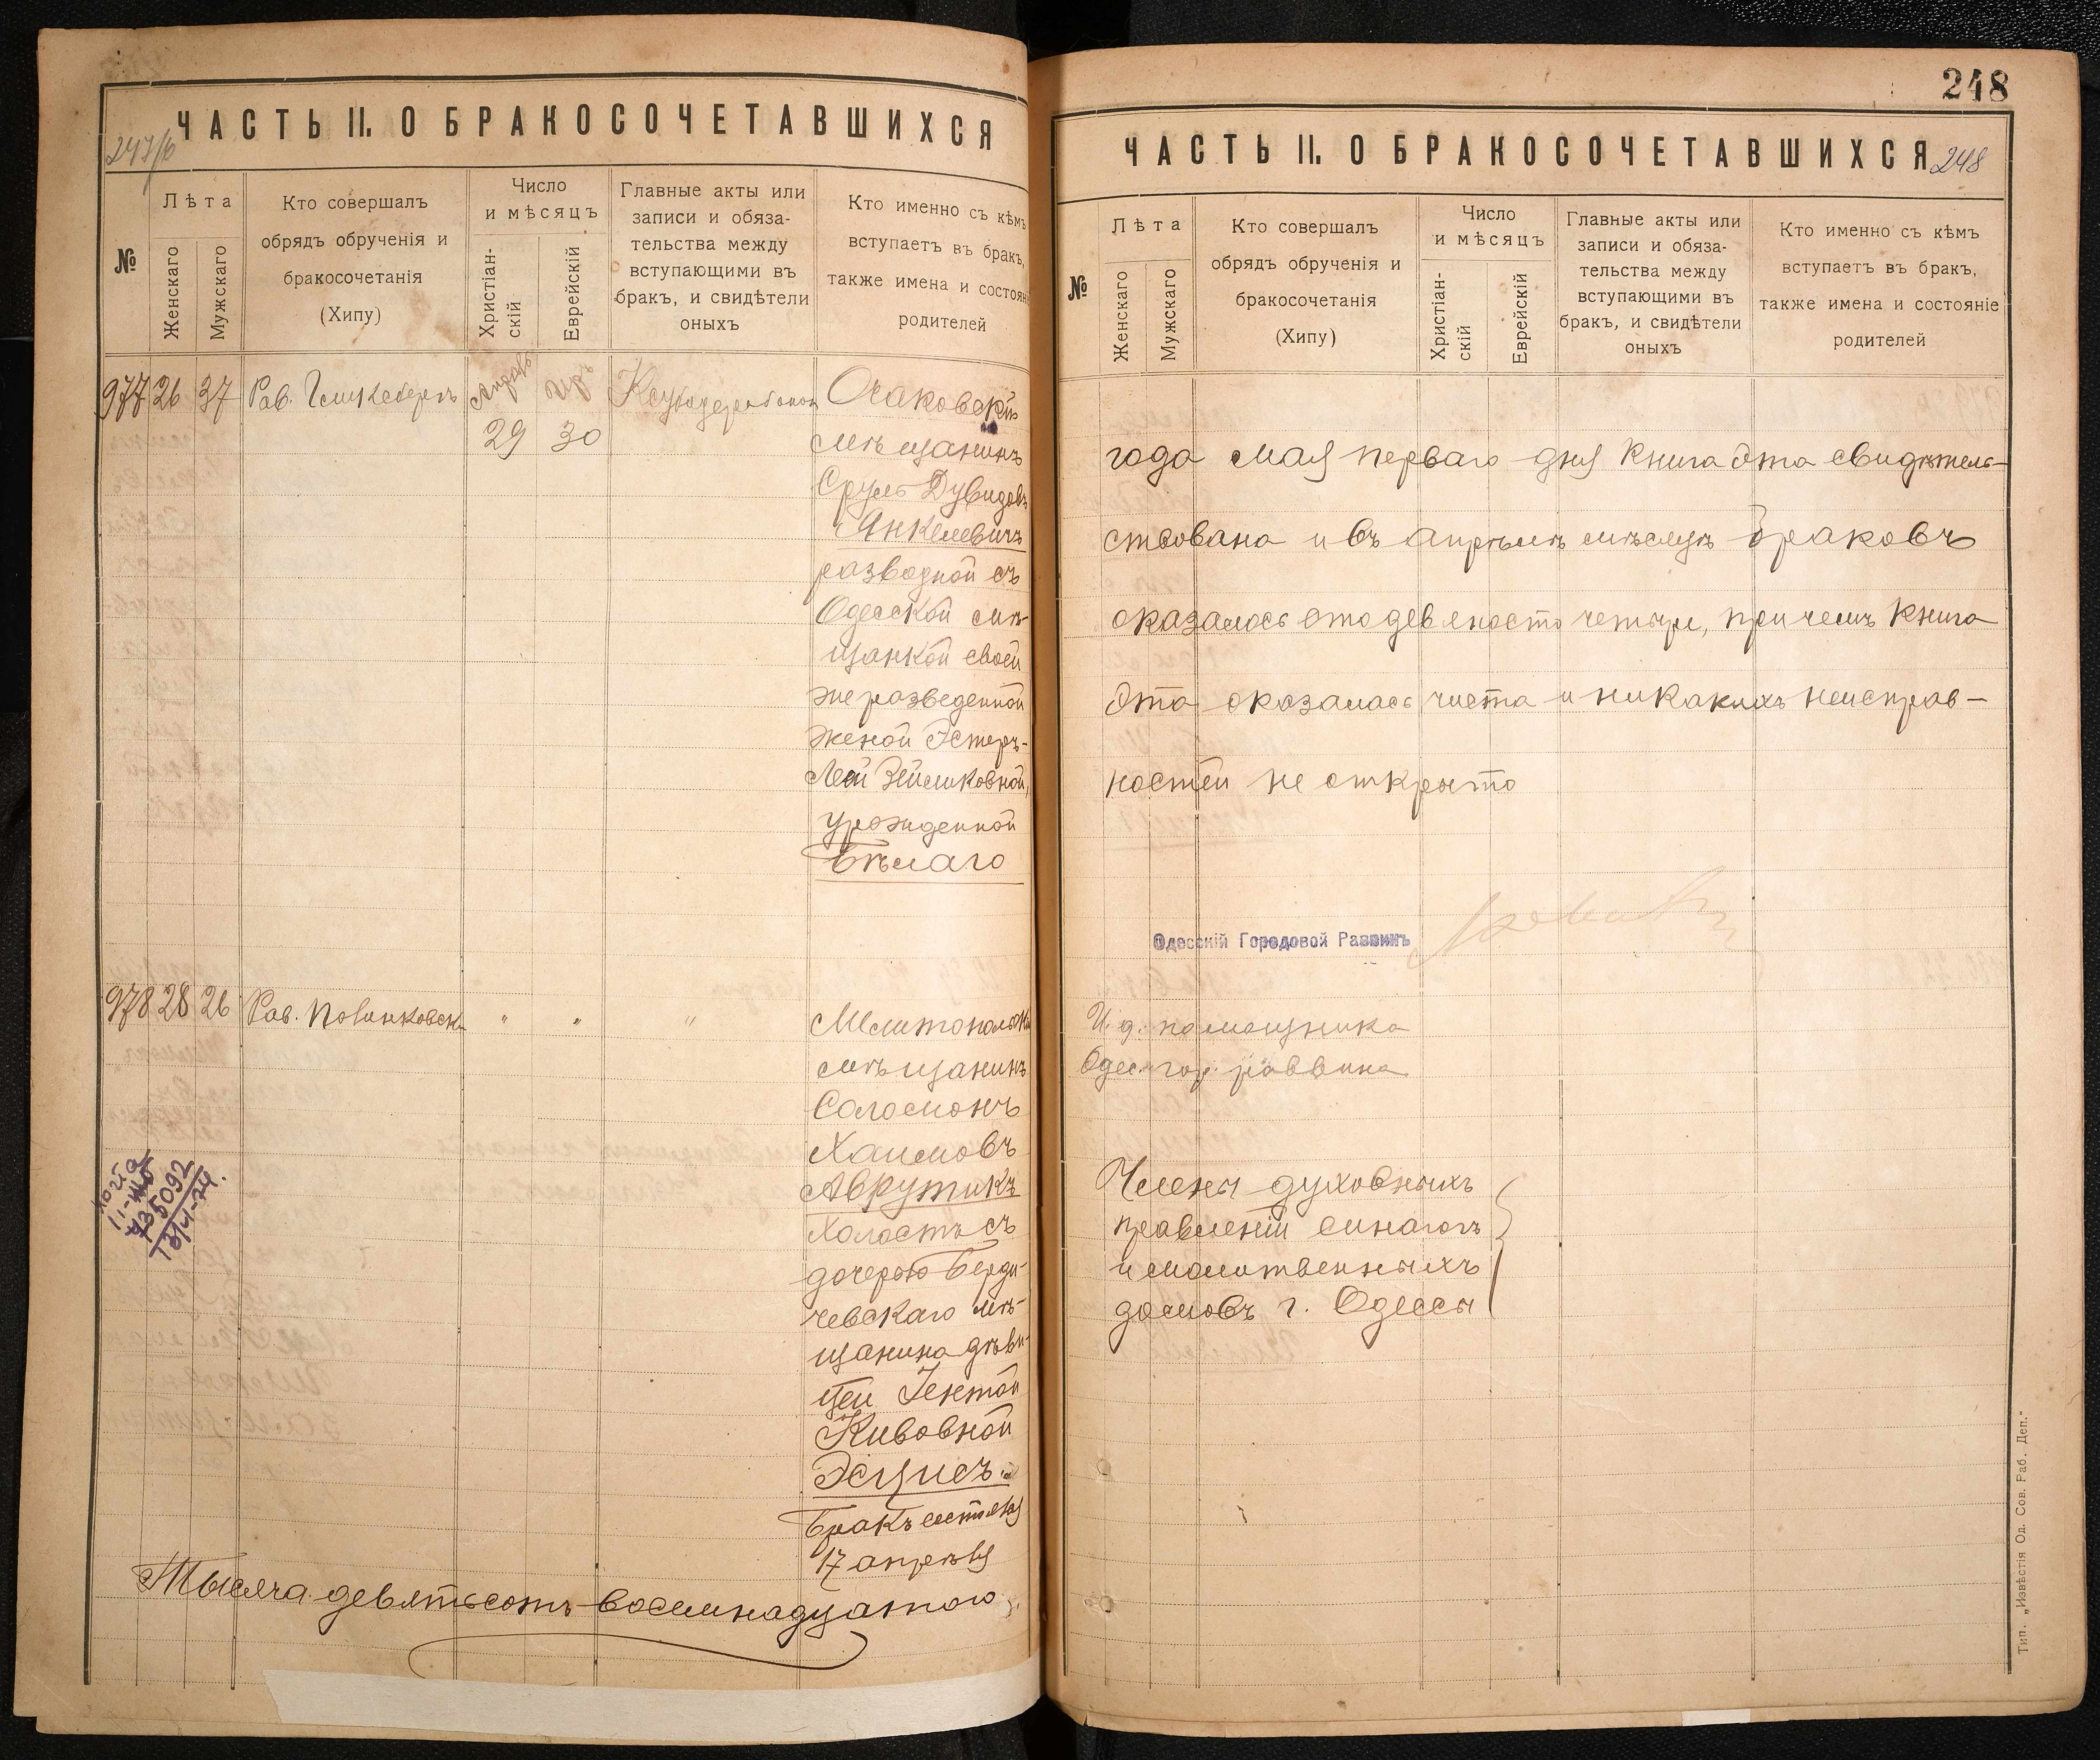 ЧАСТЬ II. О БРАКОСОЧЕТАВШИХСЯ
№
Лѣта
Женскаго
Мужскаго
Кто совершалъ
обрядъ обрученія и
бракосочетанія
(Хипу)
Число
и мѣсяцъ
Христіан-
скій
Еврейскій
Главные акты или
записи и обяза-
тельства между
вступающими въ
бракъ, и свидѣтели
оныхъ
Кто именно съ кѣмъ
вступаетъ въ бракъ,
также имена и состоян
родителей
977 26 37 Рав. 29 30
Очаковскій
мѣщанинъ
Сруль Дувидовъ
Янкелевичъ
разводной съ
Одесской мѣ-
щанкой своей
же разведенной
женой Эстеръ-
Леей Зейликовной,
урожденной
Бѣлаго
978 28 26 Рав. " " "
Мелитопольскій
мѣщанинъ
Соломонъ
Хаимовъ
Аврутикъ
холостъ съ
дочерью Берди-
чевскаго мѣ-
щанина дѣви-
цей Гентой
Кивовной
Эсцисъ.
Бракъ состоялся
17 апрѣля
Тысяча девятьсотъ восемнадцатого
248
ЧАСТЬ II. О БРАКОСОЧЕТАВШИХСЯ 248
№
Лѣта
Женскаго
Мужскаго
Кто совершалъ
обрядъ обрученія и
бракосочетанія
(Хипу)
Число
и мѣсяцъ
Христіан-
скій
Еврейскій
Главные акты или
записи и обяза-
тельства между
вступающими въ
бракъ, и свидѣтели
оныхъ
Кто именно съ кѣмъ
вступаетъ въ бракъ,
также имена и состояніе
родителей
года мая перваго дня книга эта свидѣтель-
ствована и въ апрѣлѣ мѣсяцѣ браковъ
оказалось сто девяносто четыре, при чемъ книга
эта оказалась чиста и никакихъ неисправ-
ностей не открыто
Одесскій Городовой Раввинъ
И. д. помощника
Одес. гор. раввина
Члены духовныхъ
правленій синагогъ
и молитвенныхъ
домовъ г. Одессы
Тип. „Извѣстія Од. Сов. Раб. Деп."